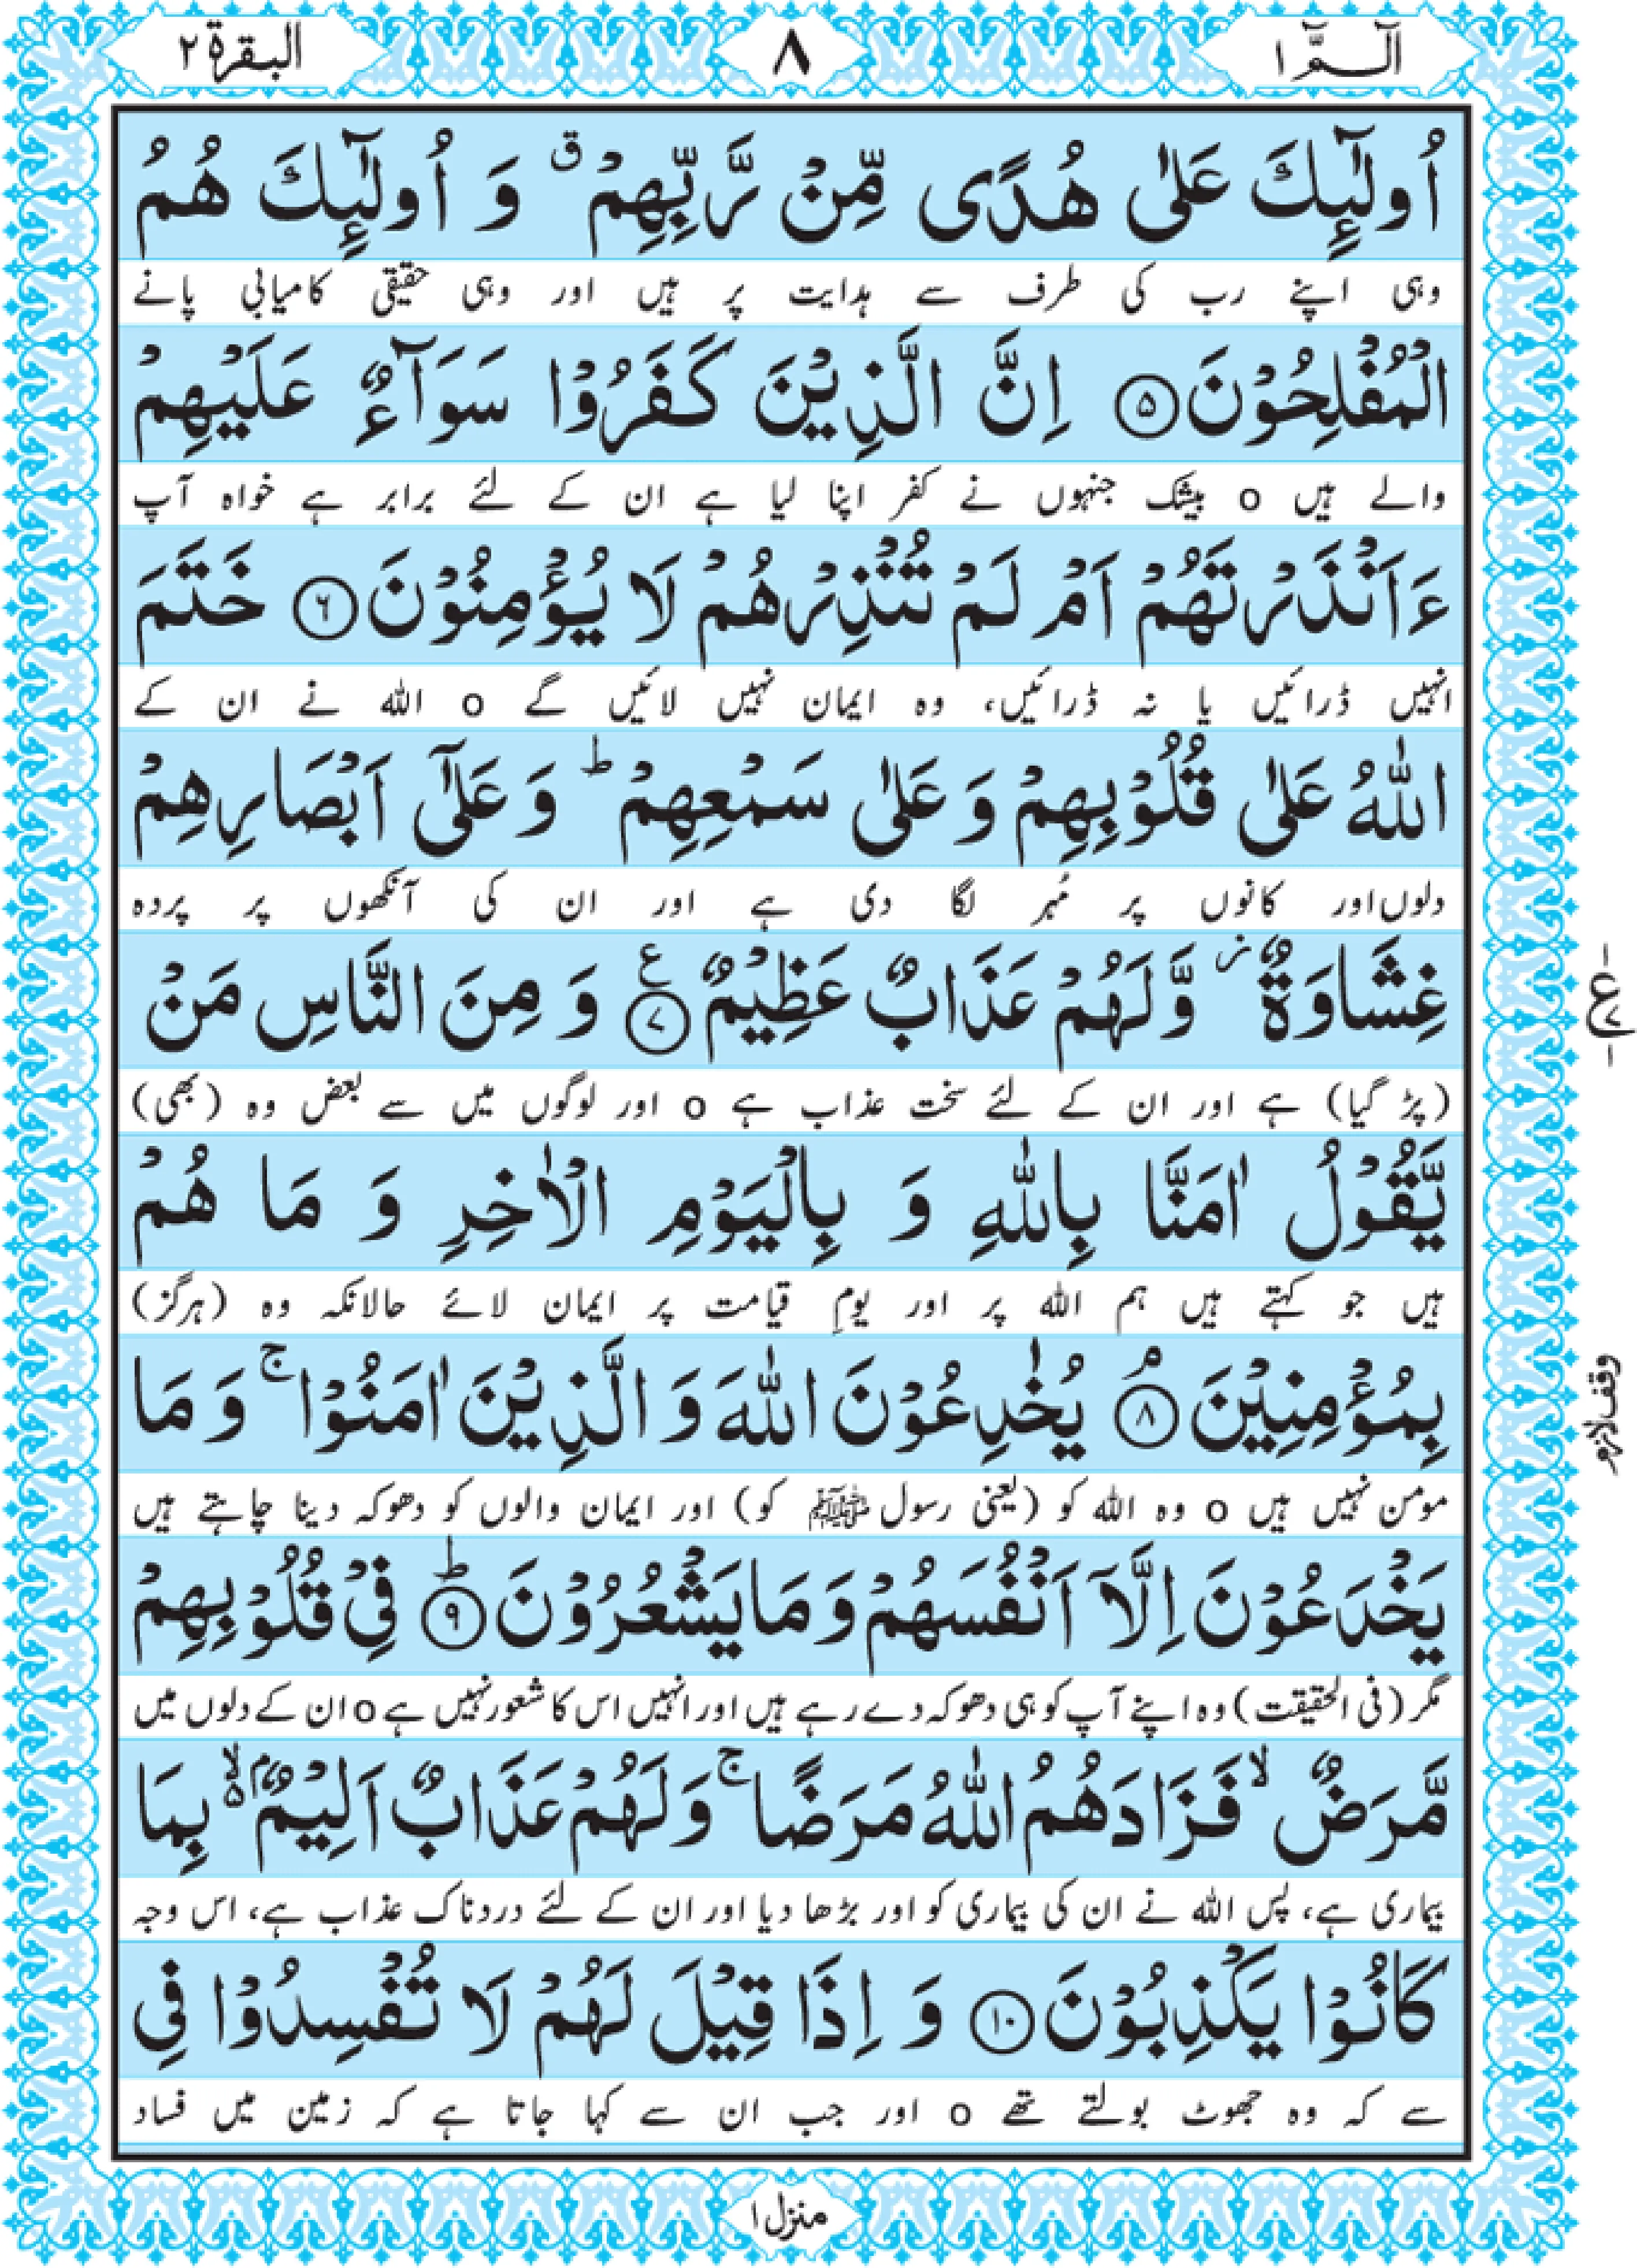 الٓـمّٓ ١
٨
البقرة ٢
اُولٰٓئِكَ عَلٰى هُدًى مِّنْ رَّبِّهِمْ ۗ وَ اُولٰٓئِكَ هُمُ
وہی اپنے رب کی طرف سے ہدایت پر ہیں اور وہی حقیقی کامیابی پانے
الْمُفْلِحُوْنَ ۝۵ اِنَّ الَّذِيْنَ كَفَرُوْا سَوَآءٌ عَلَيْهِمْ
والے ہیں o بیشک جنہوں نے کفر اپنا لیا ہے ان کے لئے برابر ہے خواہ آپ
ءَاَنْذَرْتَهُمْ اَمْ لَمْ تُنْذِرْهُمْ لَا يُؤْمِنُوْنَ ۝۶ خَتَمَ
انہیں ڈرائیں یا نہ ڈرائیں، وہ ایمان نہیں لائیں گے o اللہ نے ان کے
اللّٰهُ عَلٰى قُلُوْبِهِمْ وَ عَلٰى سَمْعِهِمْ ؕ وَ عَلٰٓى اَبْصَارِهِمْ
دلوں اور کانوں پر مُہر لگا دی ہے اور ان کی آنکھوں پر پردہ
غِشَاوَةٌ ؗ وَّ لَهُمْ عَذَابٌ عَظِيْمٌ ۝۷ ع وَ مِنَ النَّاسِ مَنْ
(پڑ گیا) ہے اور ان کے لئے سخت عذاب ہے o اور لوگوں میں سے بعض وہ (بھی)
يَّقُوْلُ اٰمَنَّا بِاللّٰهِ وَ بِالْيَوْمِ الْاٰخِرِ وَ مَا هُمْ
ہیں جو کہتے ہیں ہم اللہ پر اور یومِ قیامت پر ایمان لائے حالانکہ وہ (ہرگز)
بِمُؤْمِنِيْنَ ۝۸ۘ يُخٰدِعُوْنَ اللّٰهَ وَ الَّذِيْنَ اٰمَنُوْا ۚ وَ مَا
وقف لازم
مومن نہیں ہیں o وہ اللہ کو (یعنی رسول ﷺ کو) اور ایمان والوں کو دھوکہ دینا چاہتے ہیں
يَخْدَعُوْنَ اِلَّاۤ اَنْفُسَهُمْ وَ مَا يَشْعُرُوْنَ ۝۹ؕ فِيْ قُلُوْبِهِمْ
مگر (فی الحقیقت) وہ اپنے آپ کو ہی دھوکہ دے رہے ہیں اور انہیں اس کا شعور نہیں ہے o ان کے دلوں میں
مَّرَضٌ ۙ فَزَادَهُمُ اللّٰهُ مَرَضًا ۚ وَ لَهُمْ عَذَابٌ اَلِيْمٌۢ ۙ۬ بِمَا
بیماری ہے، پس اللہ نے ان کی بیماری کو اور بڑھا دیا اور ان کے لئے دردناک عذاب ہے، اس وجہ
كَانُوْا يَكْذِبُوْنَ ۝۱۰ وَ اِذَا قِيْلَ لَهُمْ لَا تُفْسِدُوْا فِي
سے کہ وہ جھوٹ بولتے تھے o اور جب ان سے کہا جاتا ہے کہ زمین میں فساد
منزل ١